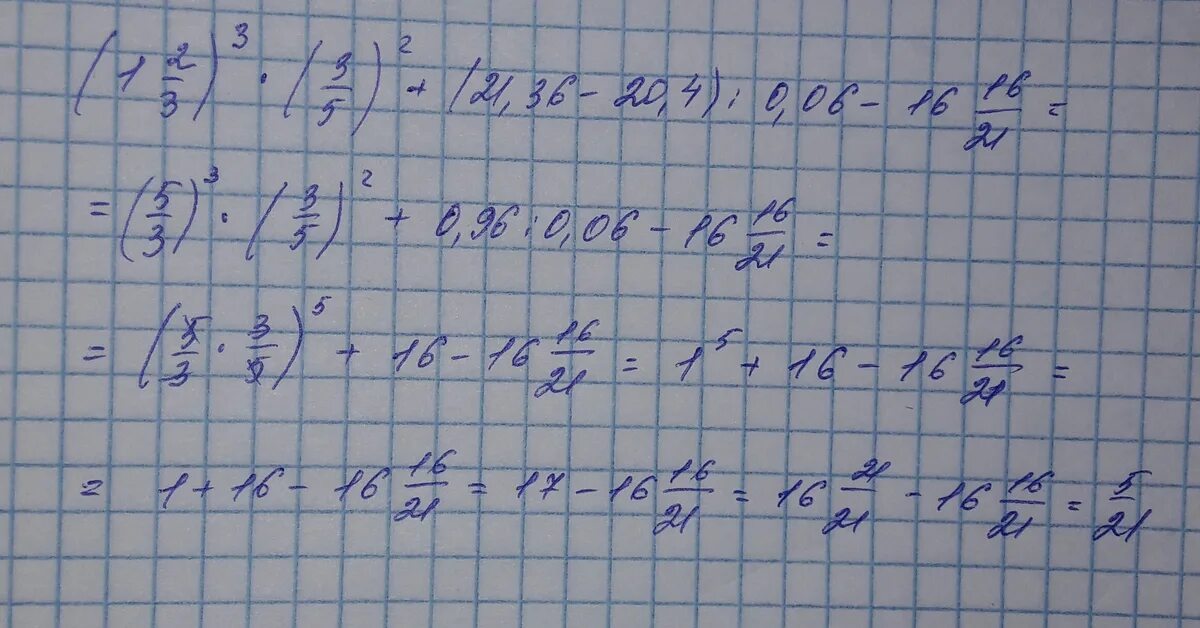 (1 2/3)³ · (3/5)² + (21,36 - 20,4) : 0,06 - 16 16/21 =
= (5/3)³ · (3/5)² + 0,96 : 0,06 - 16 16/21 =
= (5/3 · 3/5)⁵ + 16 - 16 16/21 = 1⁵ + 16 - 16 16/21 =
= 1 + 16 - 16 16/21 = 17 - 16 16/21 = 16 21/21 - 16 16/21 = 5/21